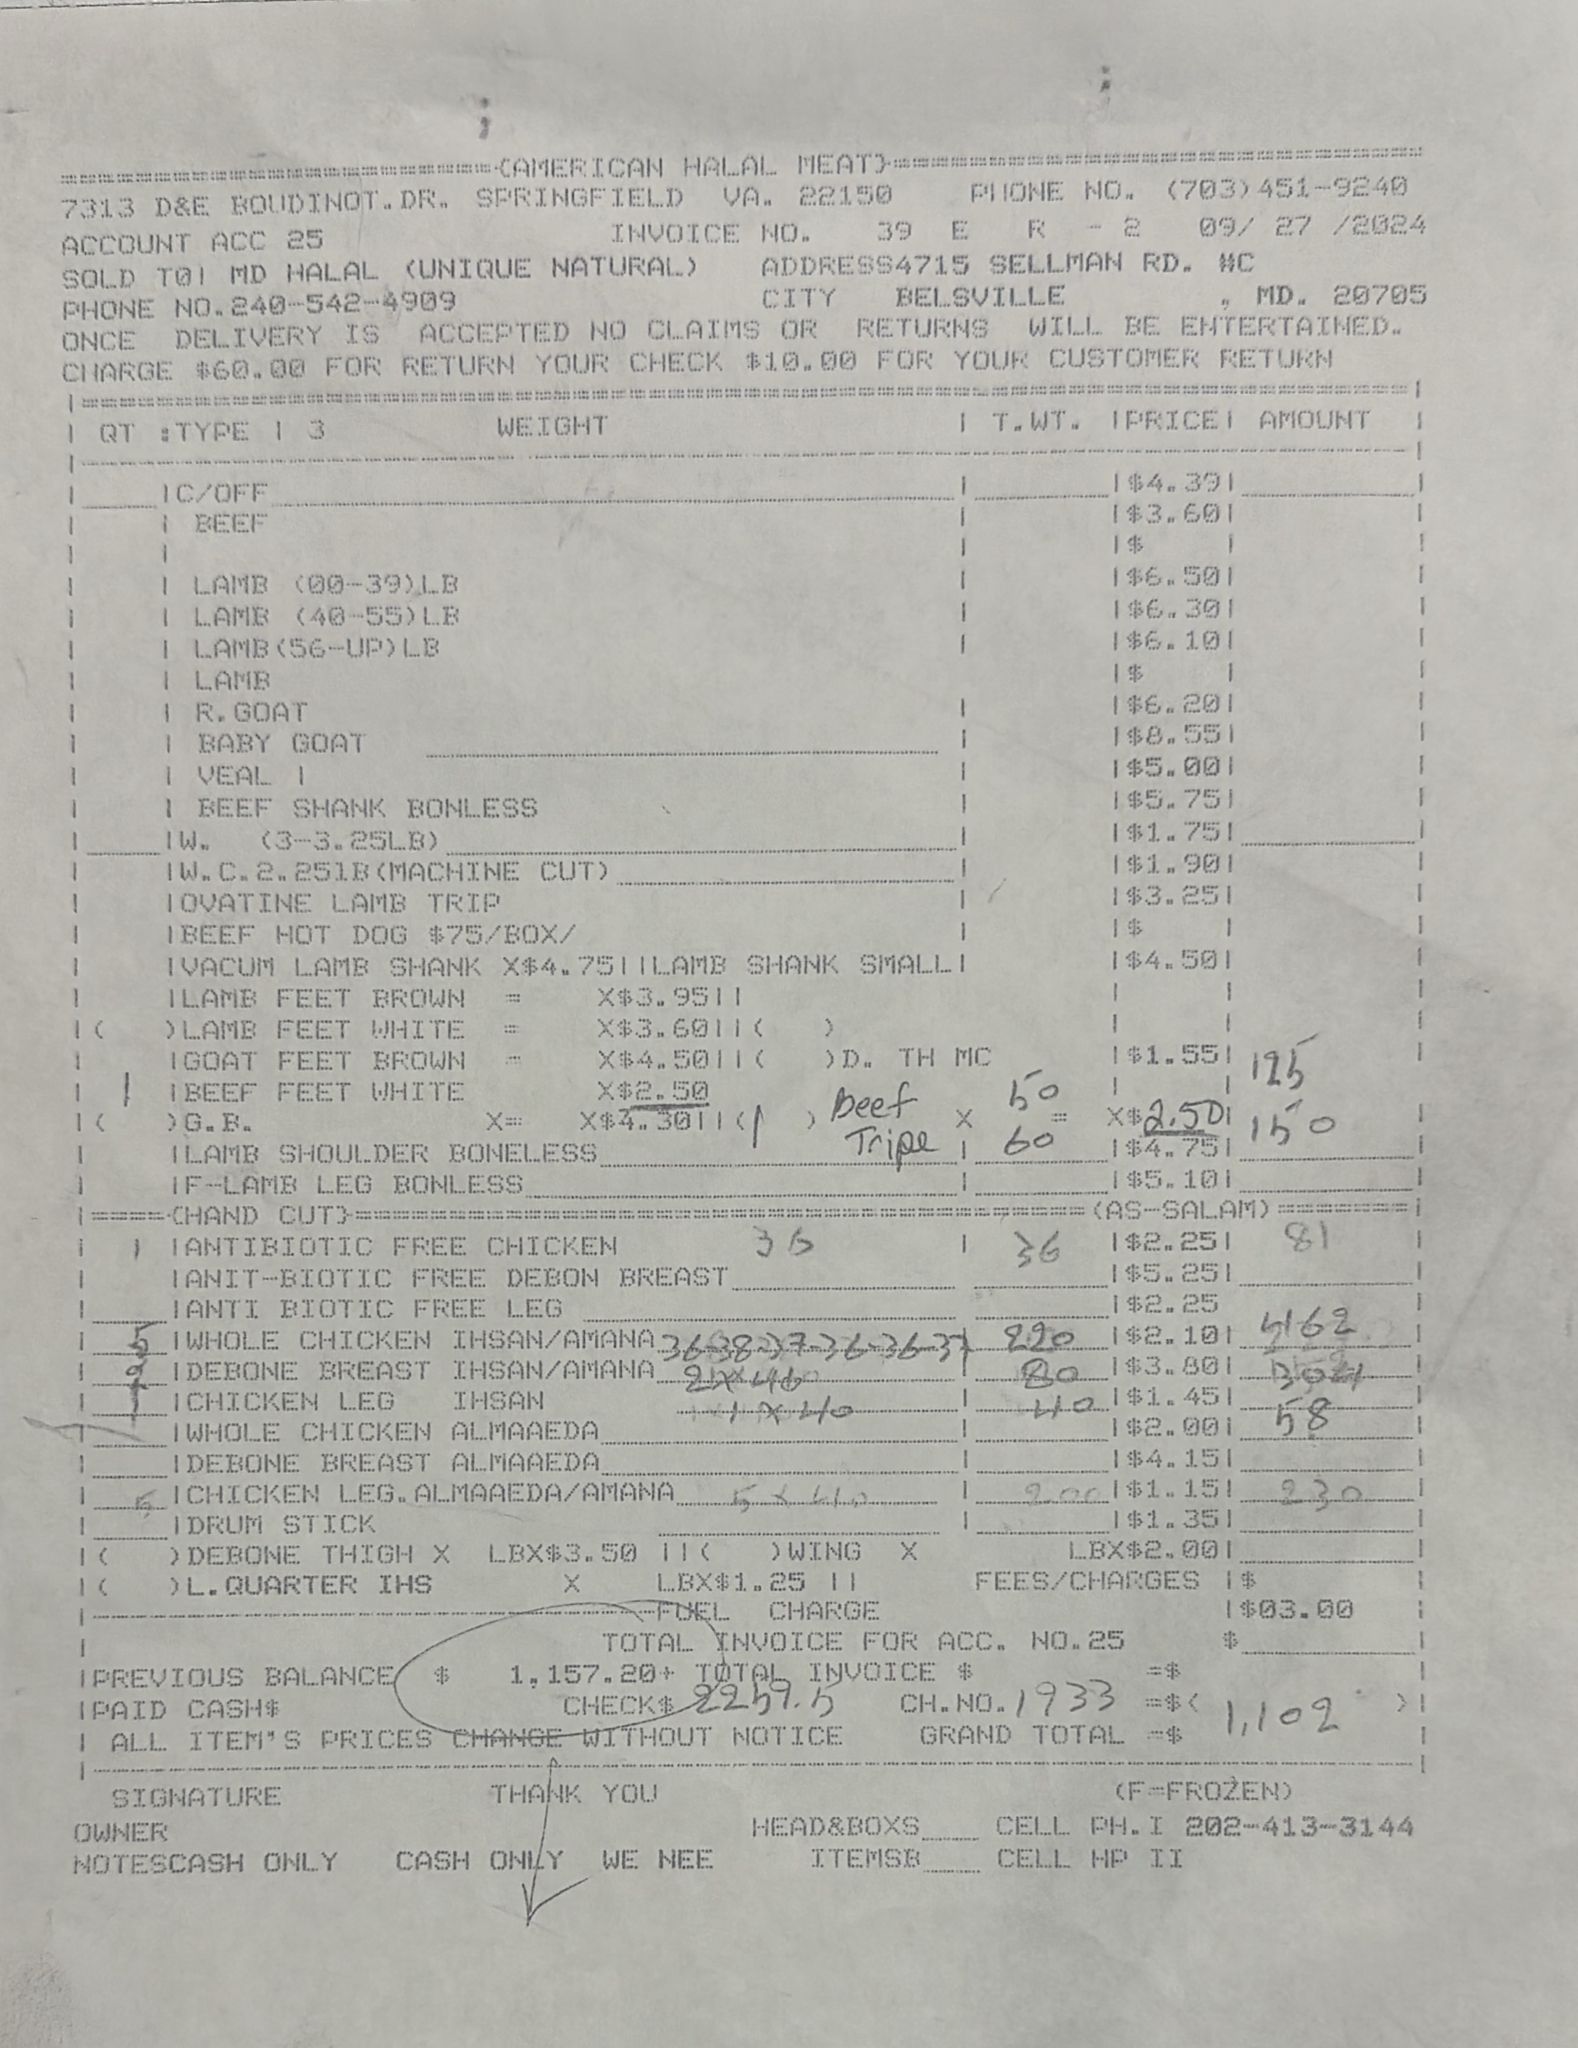 ===={AMERICAN HALAL MEAT}====
7313 D&E BOUDINOT.DR. SPRINGFIELD VA. 22150 PHONE NO. (703)451-9240
ACCOUNT ACC 25 INVOICE NO. 39 E R - 2 09/ 27 /2024
SOLD TO| MD HALAL (UNIQUE NATURAL) ADDRESS4715 SELLMAN RD. #C
PHONE NO.240-542-4909 CITY BELSVILLE , MD. 20705
ONCE DELIVERY IS ACCEPTED NO CLAIMS OR RETURNS WILL BE ENTERTAINED.
CHARGE $60.00 FOR RETURN YOUR CHECK $10.00 FOR YOUR CUSTOMER RETURN
| QT :TYPE | 3 WEIGHT | T.WT. |PRICE| AMOUNT |
|C/OFF | |$4.39|
| BEEF | |$3.60|
| | |$ |
| LAMB (00-39)LB |$6.50|
| LAMB (40-55)LB |$6.30|
| LAMB(56-UP)LB |$6.10|
| LAMB |$ |
| R.GOAT | |$6.20|
| BABY GOAT | |$8.55|
| VEAL | | |$5.00|
| BEEF SHANK BONLESS | |$5.75|
|W. (3-3.25LB) | |$1.75|
|W.C.2.25lB(MACHINE CUT) | |$1.90|
|OVATINE LAMB TRIP | |$3.25|
|BEEF HOT DOG $75/BOX/ | |$ |
|VACUM LAMB SHANK X$4.75||LAMB SHANK SMALL| |$4.50|
|LAMB FEET BROWN = X$3.95||
|( )LAMB FEET WHITE = X$3.60||( )
|GOAT FEET BROWN = X$4.50||( )D. TH MC |$1.55|
1 |BEEF FEET WHITE X$2.50 50 125
|( )G.B. X= X$4.30||(1 ) Beef Tripe X 60 = X$2.50| 150
|LAMB SHOULDER BONELESS | |$4.75|
|F-LAMB LEG BONLESS | |$5.10|
|===={HAND CUT}====(AS-SALAM)====|
1 |ANTIBIOTIC FREE CHICKEN 36 | 36 |$2.25| 81
|ANIT-BIOTIC FREE DEBON BREAST |$5.25|
|ANTI BIOTIC FREE LEG |$2.25
5 |WHOLE CHICKEN IHSAN/AMANA 36-38-37-36-36-37 220 |$2.10| 462
2 |DEBONE BREAST IHSAN/AMANA 2X40 80 |$3.80| 304
1 |CHICKEN LEG IHSAN 1 X 40 40 |$1.45| 58
|WHOLE CHICKEN ALMAAEDA |$2.00|
|DEBONE BREAST ALMAAEDA |$4.15|
5 |CHICKEN LEG.ALMAAEDA/AMANA 5 X 40 | 200 |$1.15| 230
|DRUM STICK | |$1.35|
|( )DEBONE THIGH X LBX$3.50 ||( )WING X LBX$2.00|
|( )L.QUARTER IHS X LBX$1.25 || FEES/CHARGES |$
FUEL CHARGE |$03.00
TOTAL INVOICE FOR ACC. NO.25 $
|PREVIOUS BALANCE $ 1,157.20+ TOTAL INVOICE $ =$
|PAID CASH$ CHECK$ 2259.5 CH.NO. 1933 =$( 1,102 )|
| ALL ITEM'S PRICES CHANGE WITHOUT NOTICE GRAND TOTAL =$
SIGNATURE THANK YOU (F=FROZEN)
OWNER HEAD&BOXS CELL PH.I 202-413-3144
NOTESCASH ONLY CASH ONLY WE NEE ITEMSB CELL HP II